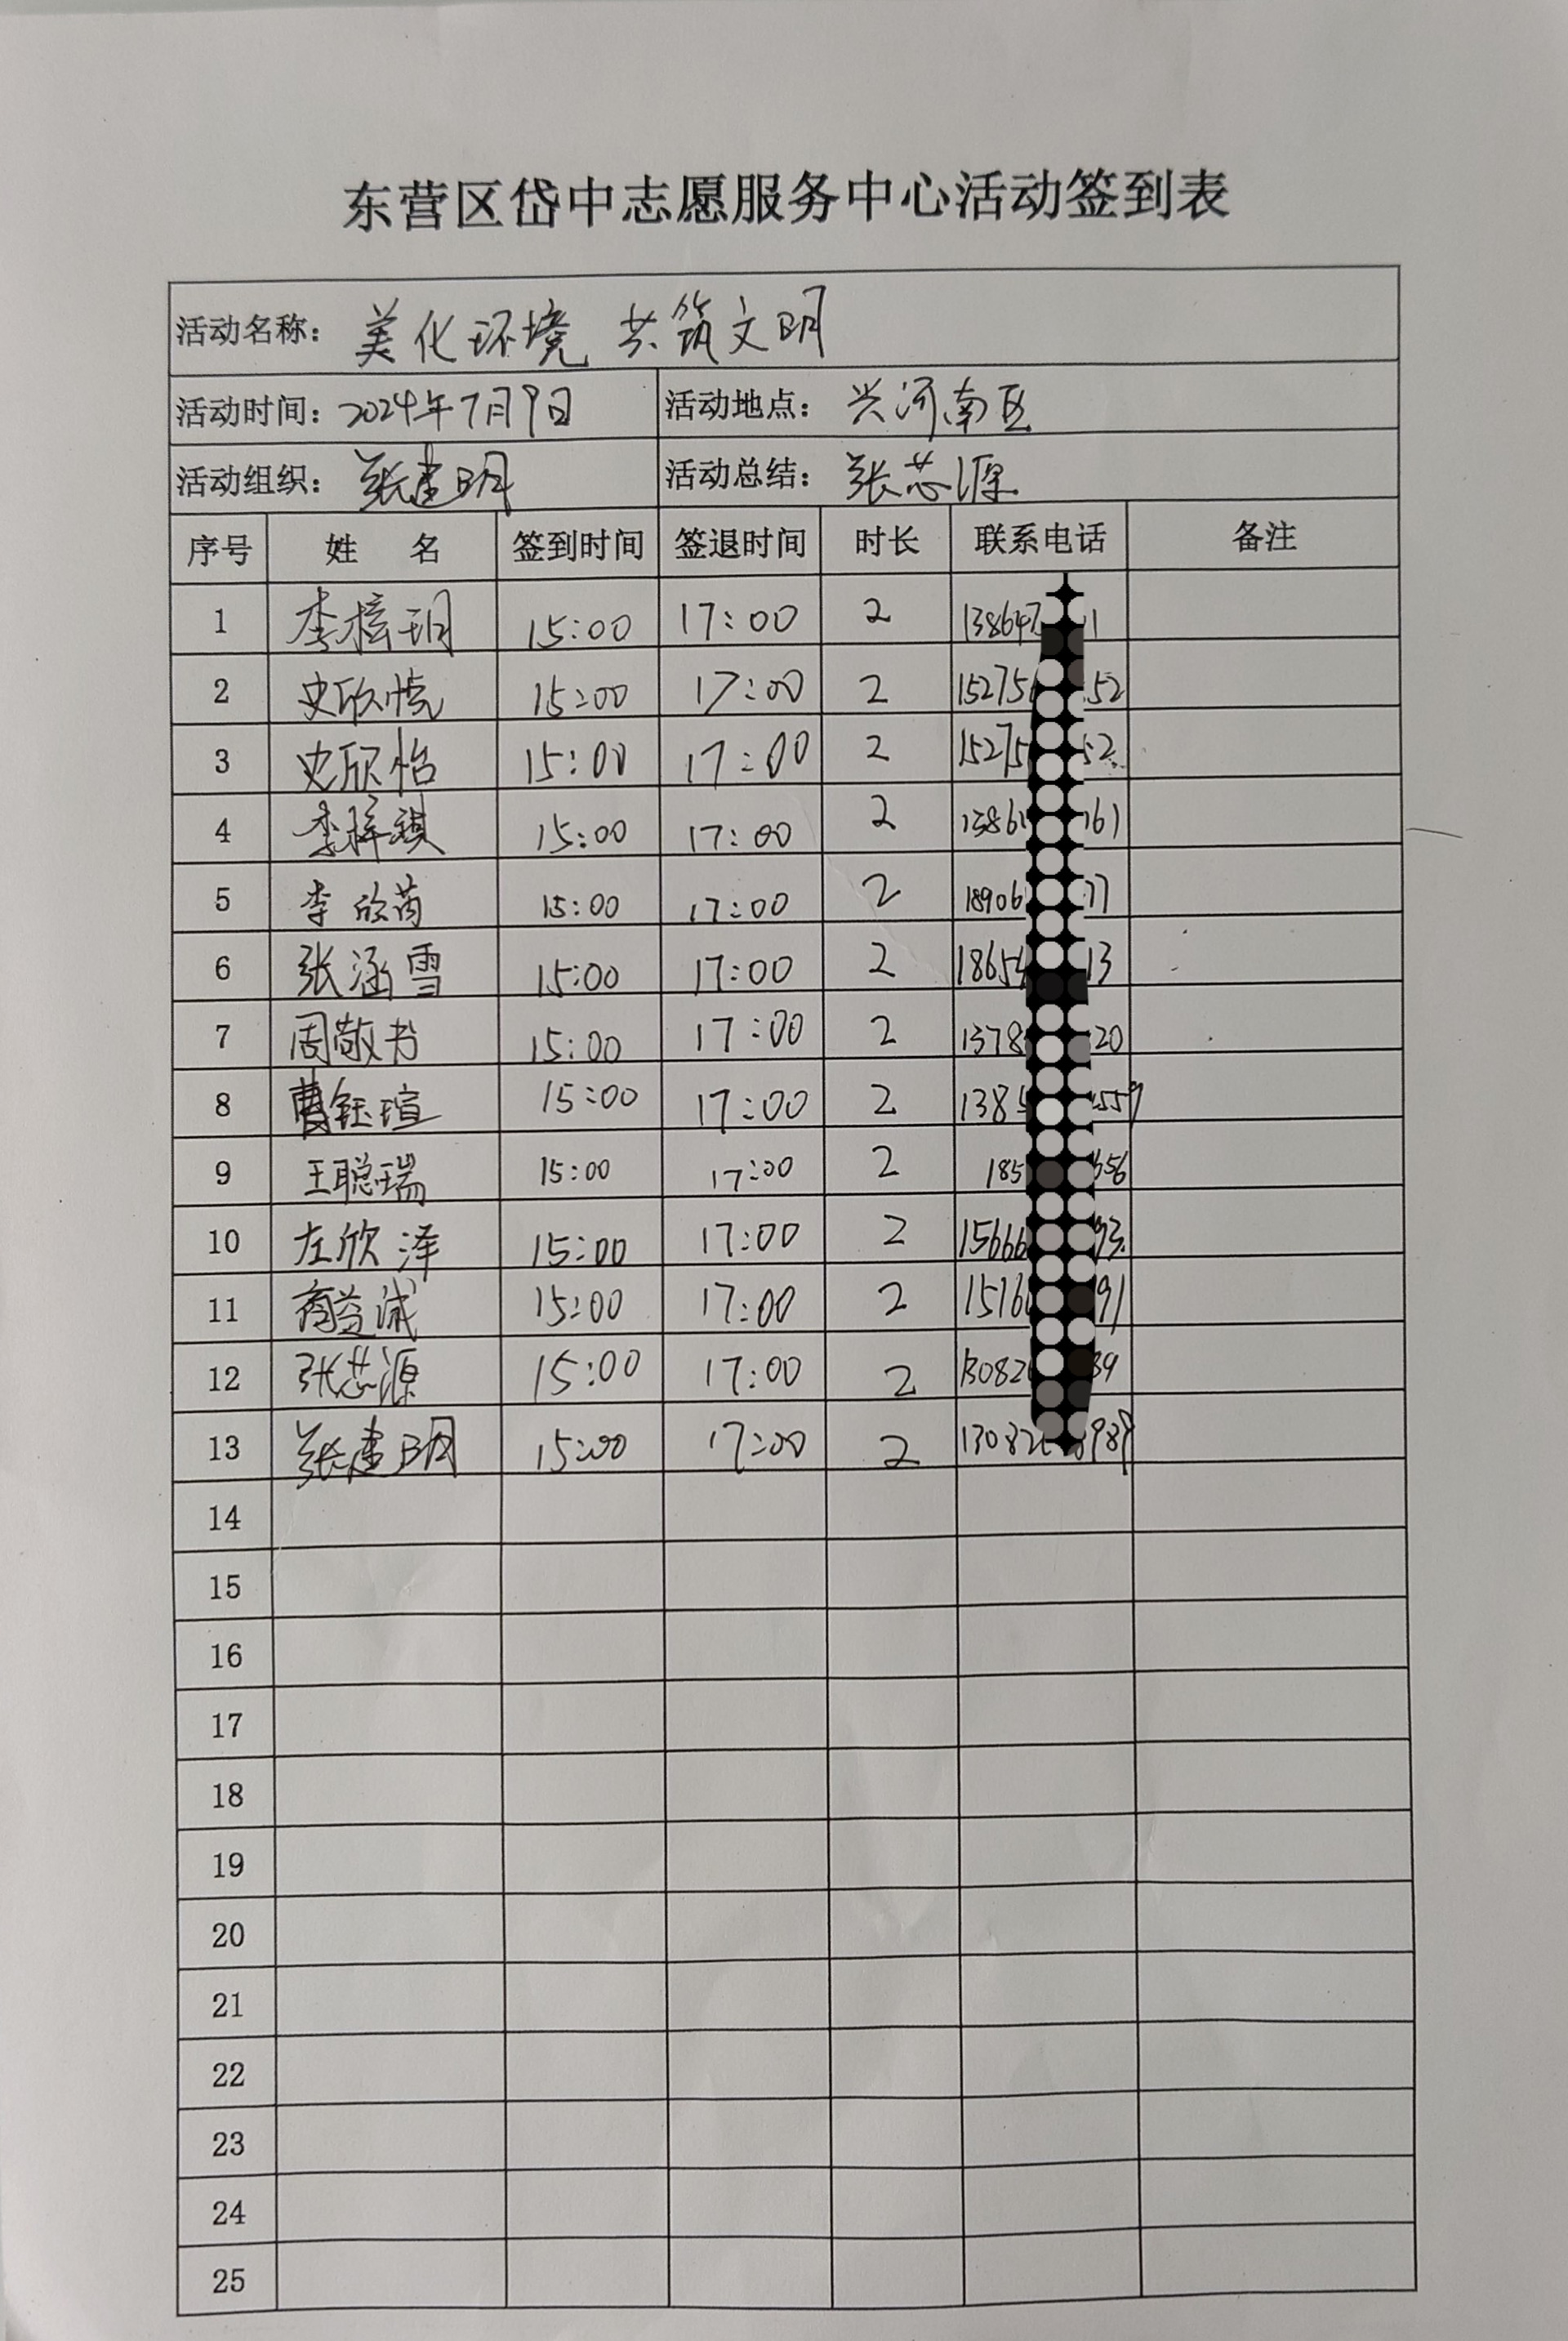 东营区岱中志愿服务中心活动签到表
活动名称： 美化环境 共筑文明
活动时间：2024年7月9日 活动地点： 兴河南区
活动组织： 张建明 活动总结： 张芯源
序号 姓 名 签到时间 签退时间 时长 联系电话 备注
1 李梓玥 15:00 17:00 2 138647 1
2 史欣悦 15:00 17:00 2 15275 52
3 史欣怡 15:00 17:00 2 15275 52
4 李梓祺 15:00 17:00 2 1386 161
5 李欣芮 15:00 17:00 2 18906 77
6 张涵雪 15:00 17:00 2 1865 13
7 周敬书 15:00 17:00 2 1378 20
8 曹钰瑄 15:00 17:00 2 138 559
9 王聪瑞 15:00 17:00 2 185 56
10 左欣泽 15:00 17:00 2 15666 93
11 商益诚 15:00 17:00 2 1516 91
12 张芯源 15:00 17:00 2 13082 89
13 张建明 15:00 17:00 2 13082 8989
14
15
16
17
18
19
20
21
22
23
24
25